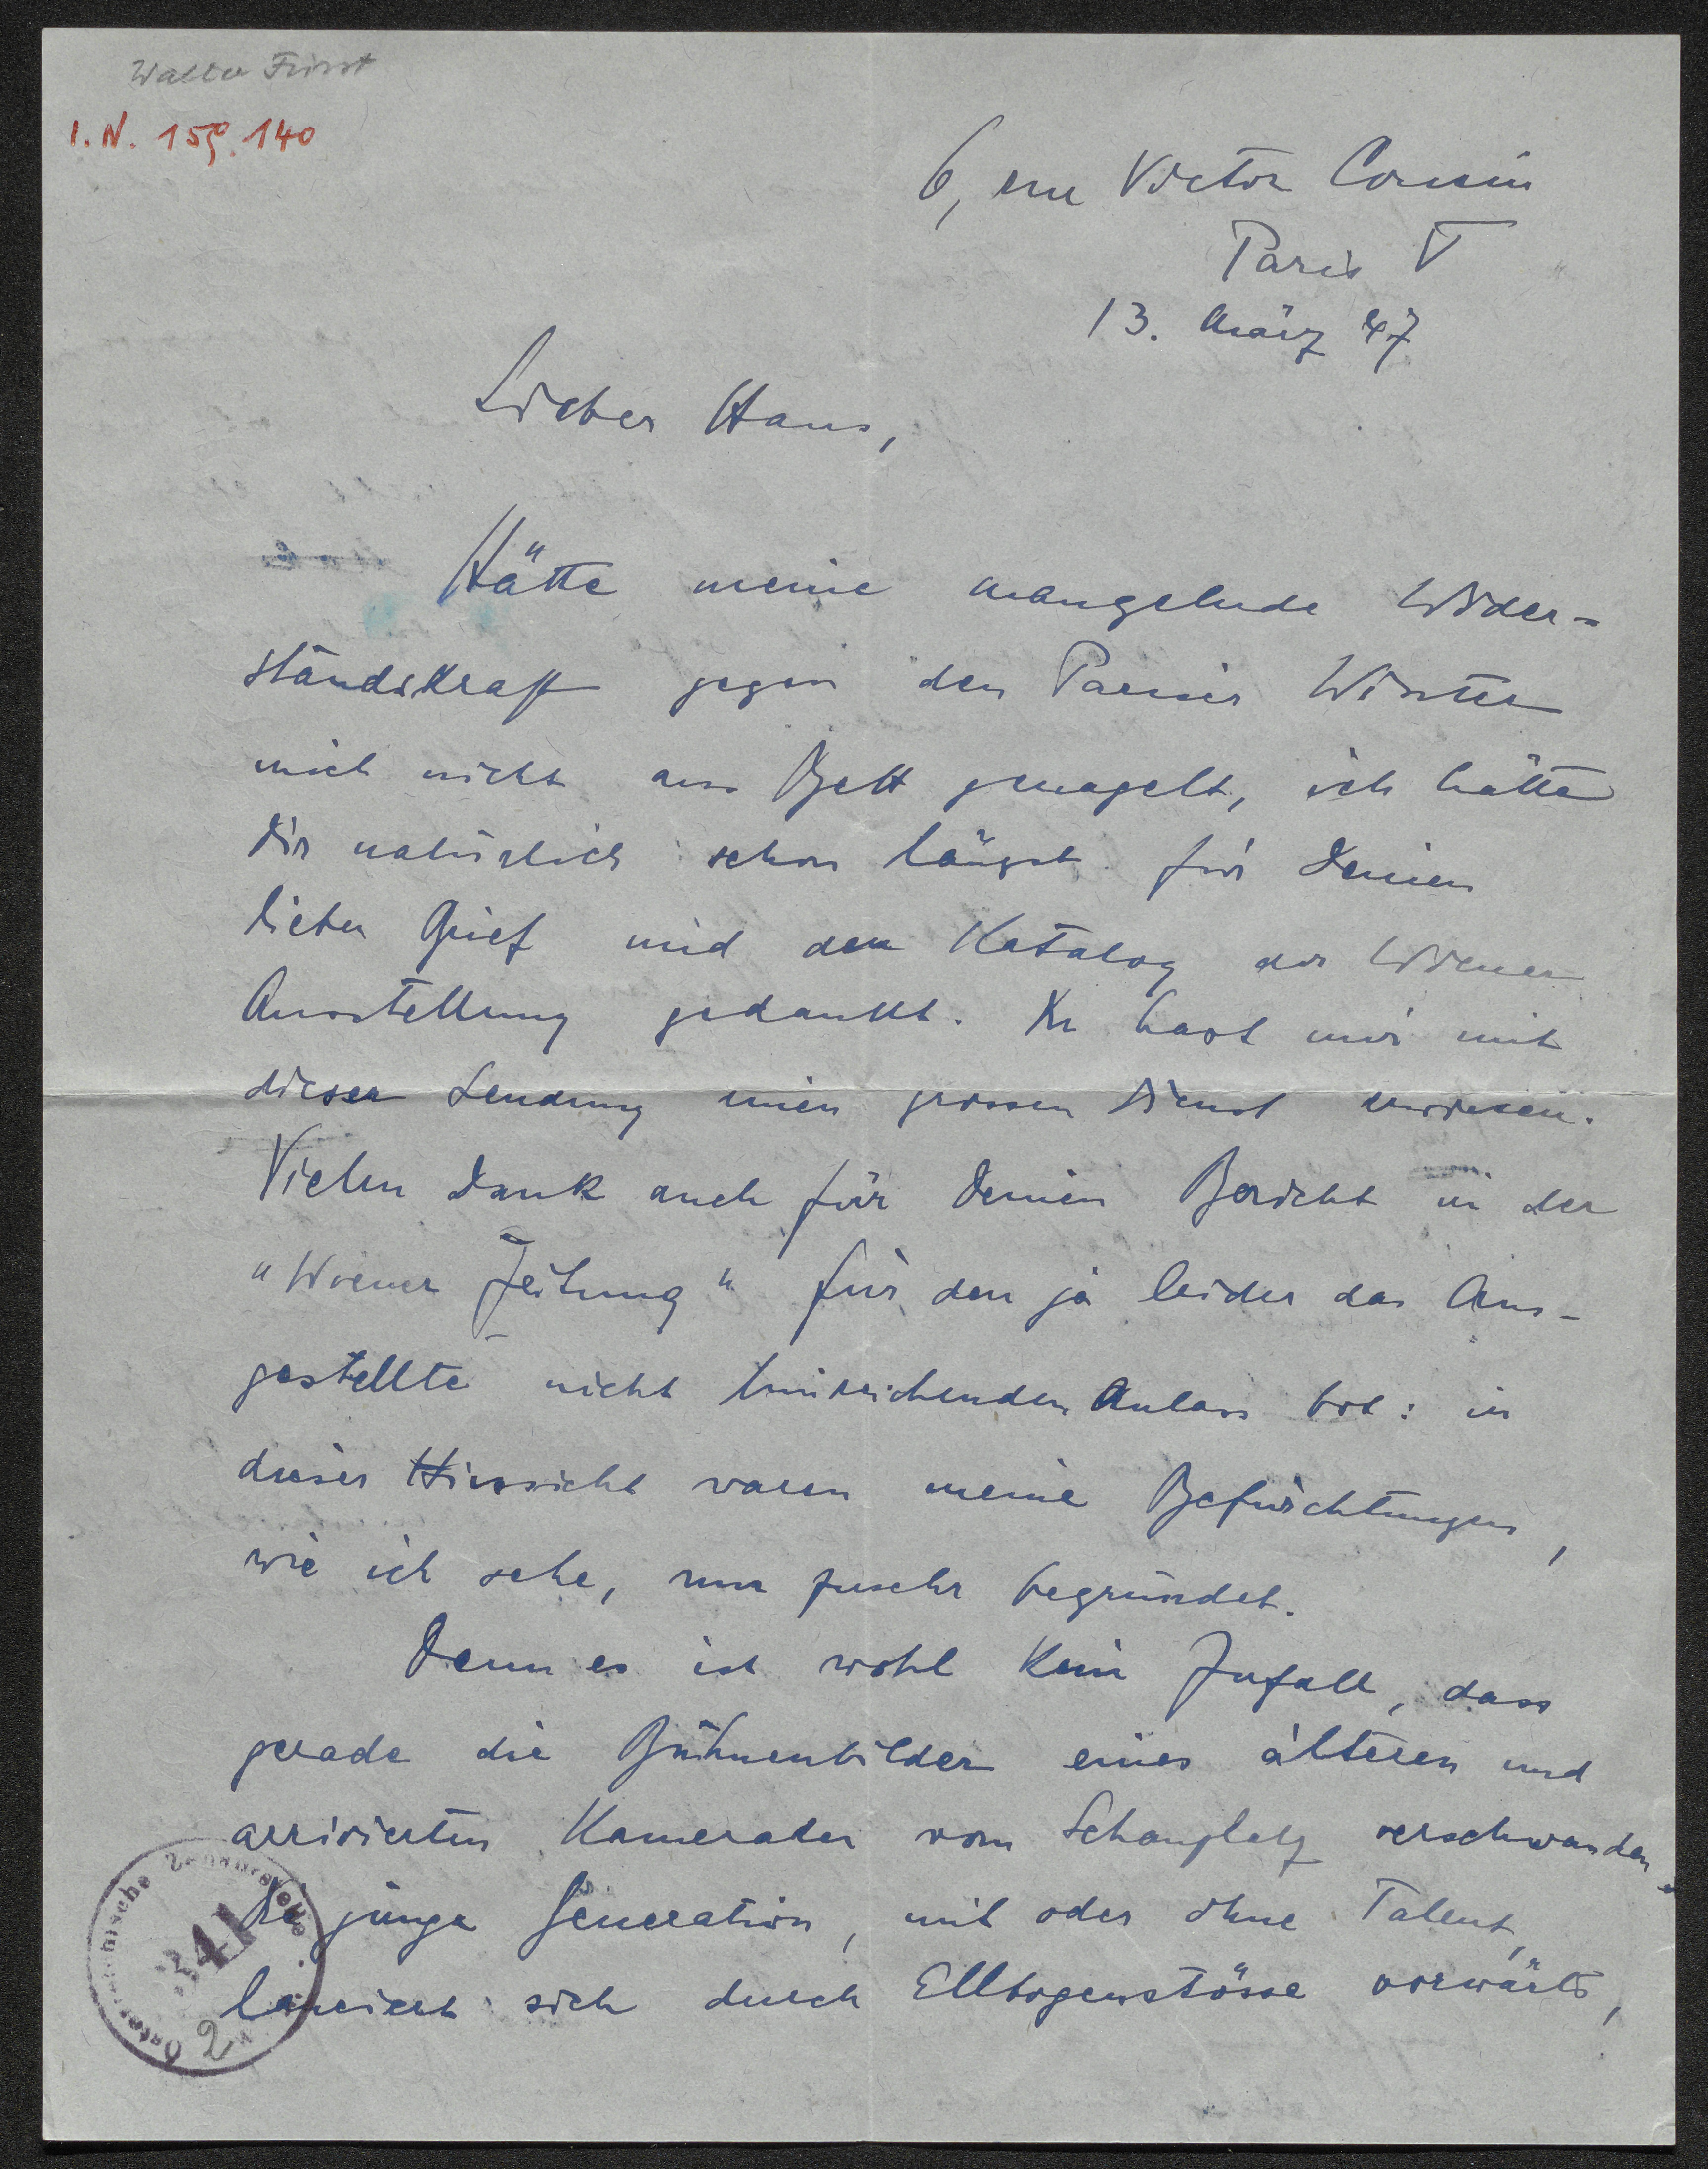 Walter Fürst
I.N. 159.140
6, rue Victor Cousin
Paris V
13. März 47
Lieber Hans,
Hätte meine mangelnde Wider-
standskraft gegen den Pariser Winter
mich nicht ans Bett genagelt, ich hätte
Dir natürlich schon längst für Deinen
lieben Brief und den Katalog der Wiener
Ausstellung gedankt. Du hast mir mit
dieser Sendung einen grossen Dienst erwiesen.
Vielen Dank auch für Deinen Bericht in der
"Wiener Zeitung" für den ja leider das Aus-
gestellte nicht hinreichenden Anlass bot: in
dieser Hinsicht waren meine Befürchtungen,
wie ich sehe, nur zusehr begründet.
Denn es ist wohl kein Zufall, dass
gerade die Bühnenbilder eines älteren und
arrivierten Kameraden vom Schauplatz verschwanden.
Die junge Generation, mit oder ohne Talent,
lanciert sich durch Ellbogenstösse vorwärts,
341
2